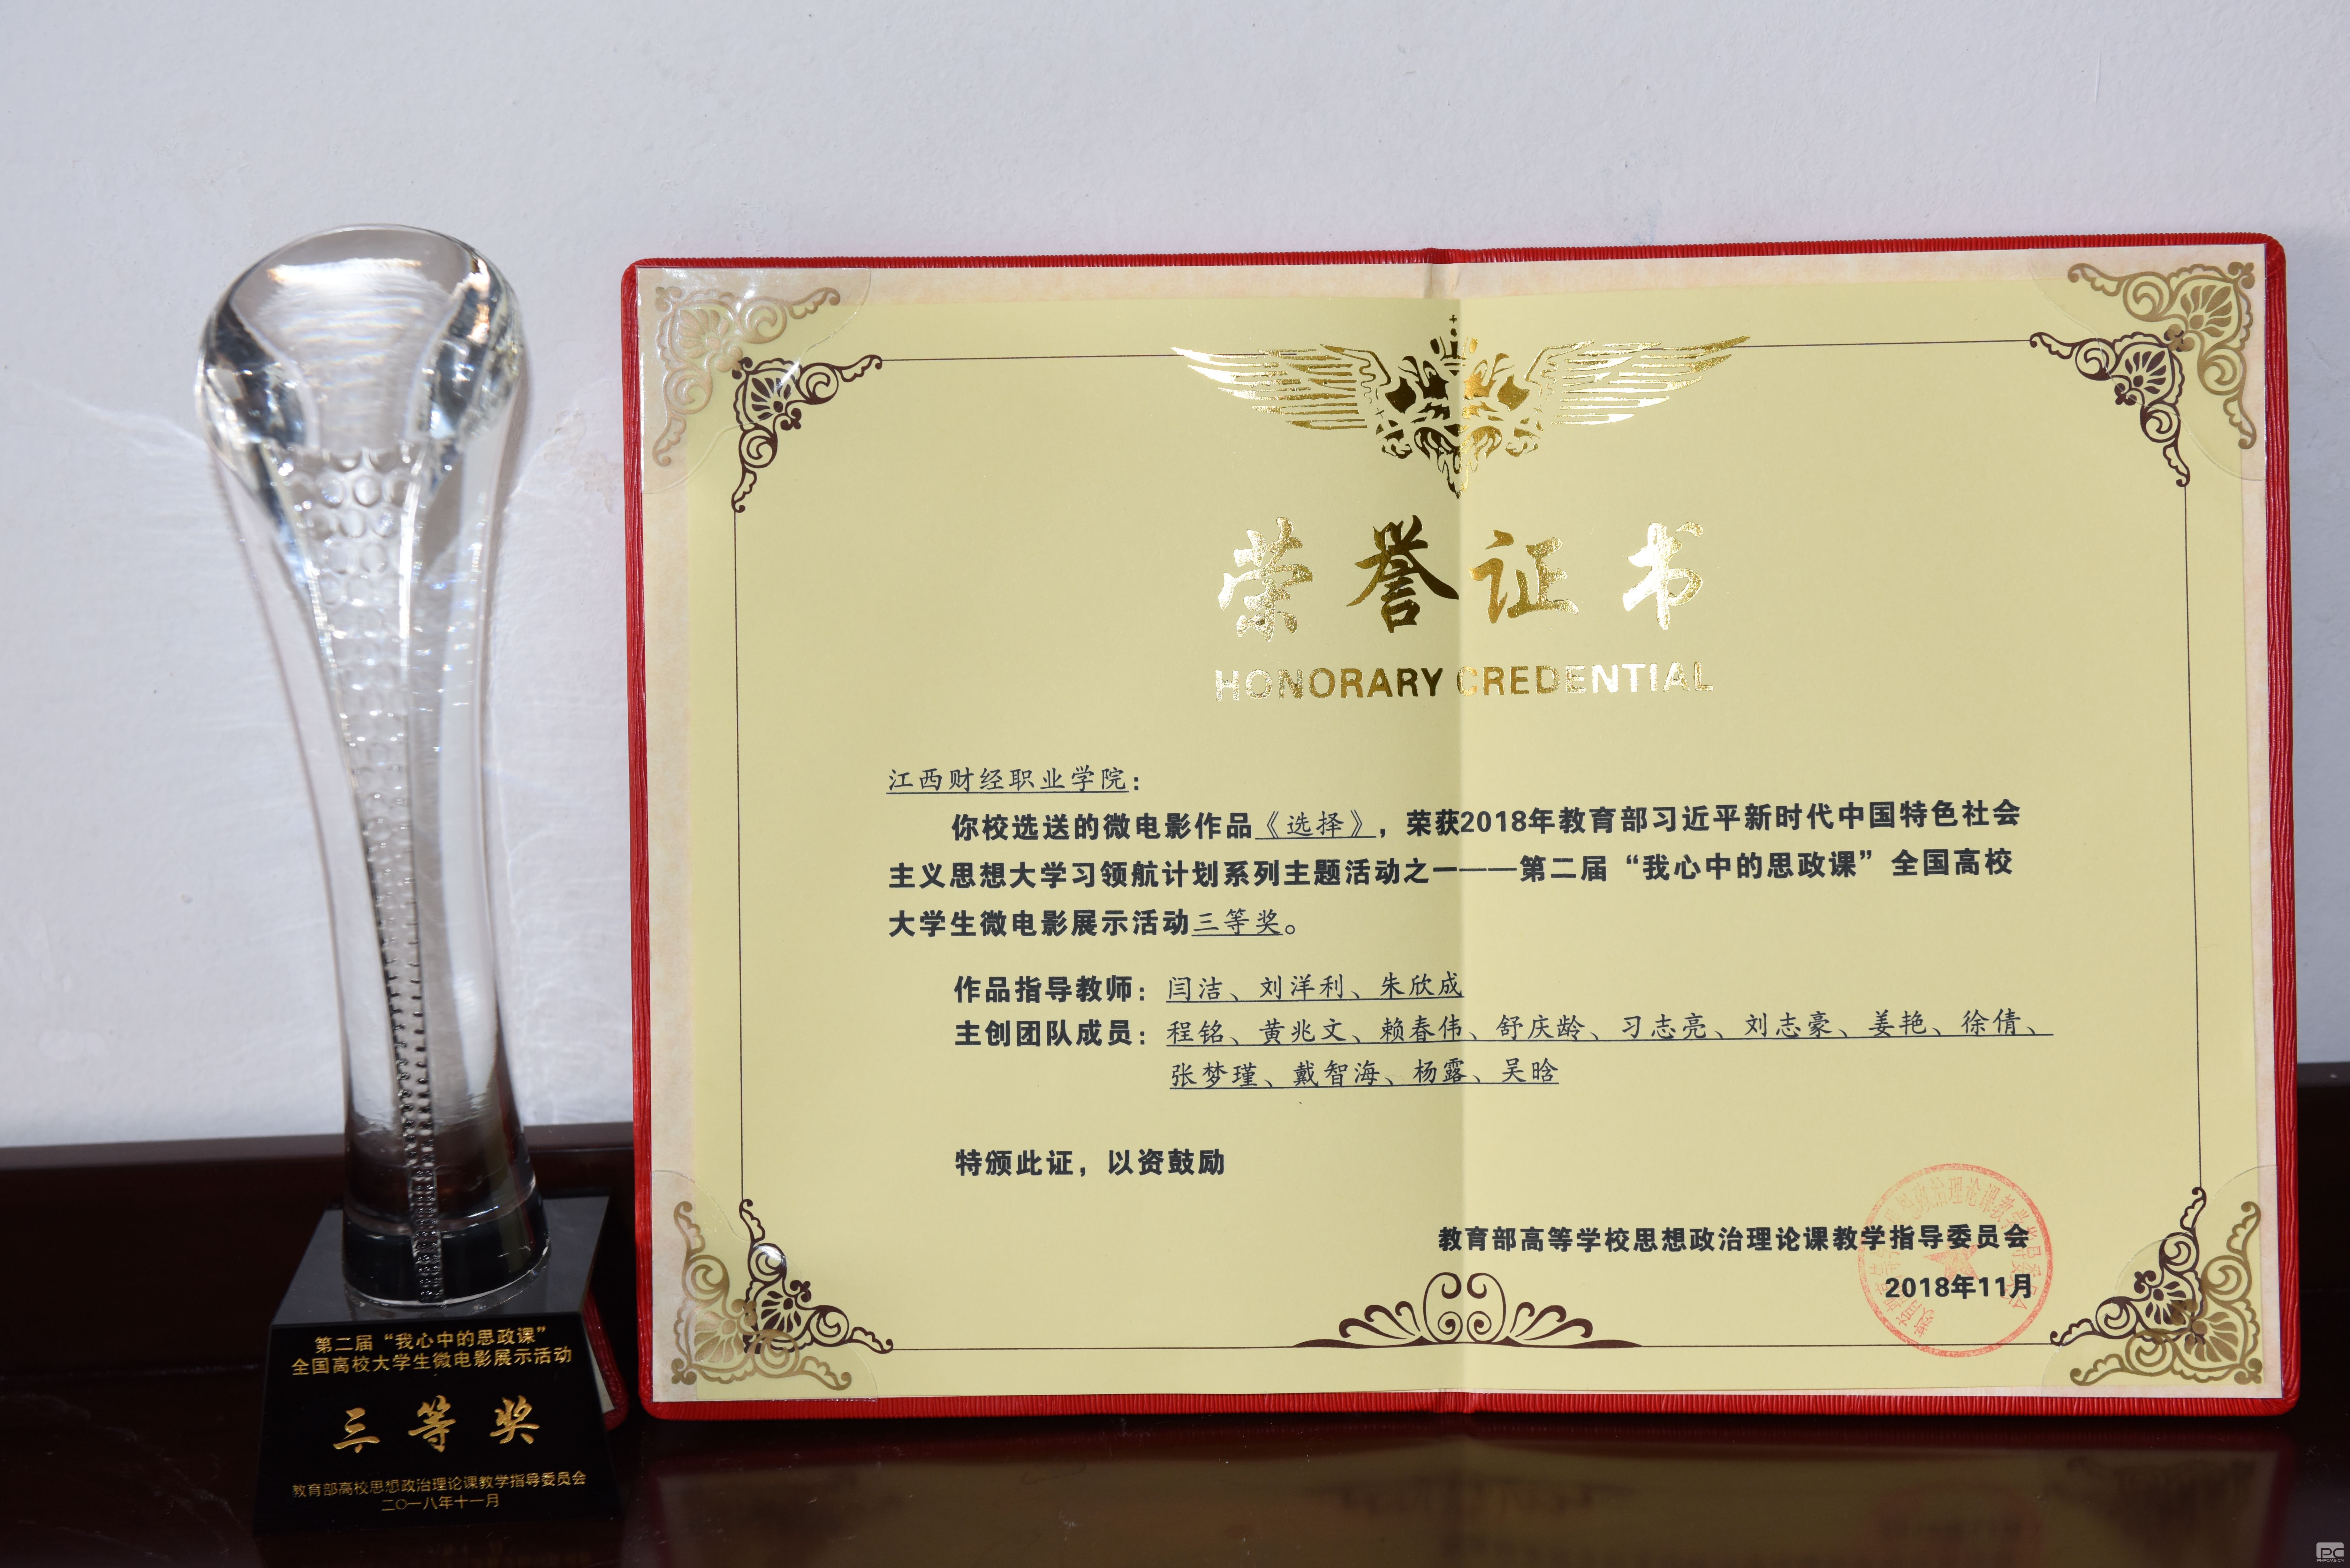 荣誉证书
HONORARY CREDENTIAL
江西财经职业学院：
你校选送的微电影作品《选择》，荣获2018年教育部习近平新时代中国特色社会
主义思想大学习领航计划系列主题活动之一——第二届“我心中的思政课”全国高校
大学生微电影展示活动三等奖。
作品指导教师：闫洁、刘洋利、朱欣成
主创团队成员：程铭、黄兆文、赖春伟、舒庆龄、习志亮、刘志豪、姜艳、徐倩、
张梦瑾、戴智海、杨露、吴晗
特颁此证，以资鼓励
教育部高等学校思想政治理论课教学指导委员会
2018年11月
第二届“我心中的思政课”
全国高校大学生微电影展示活动
三等奖
教育部高校思想政治理论课教学指导委员会
二〇一八年十一月
PC